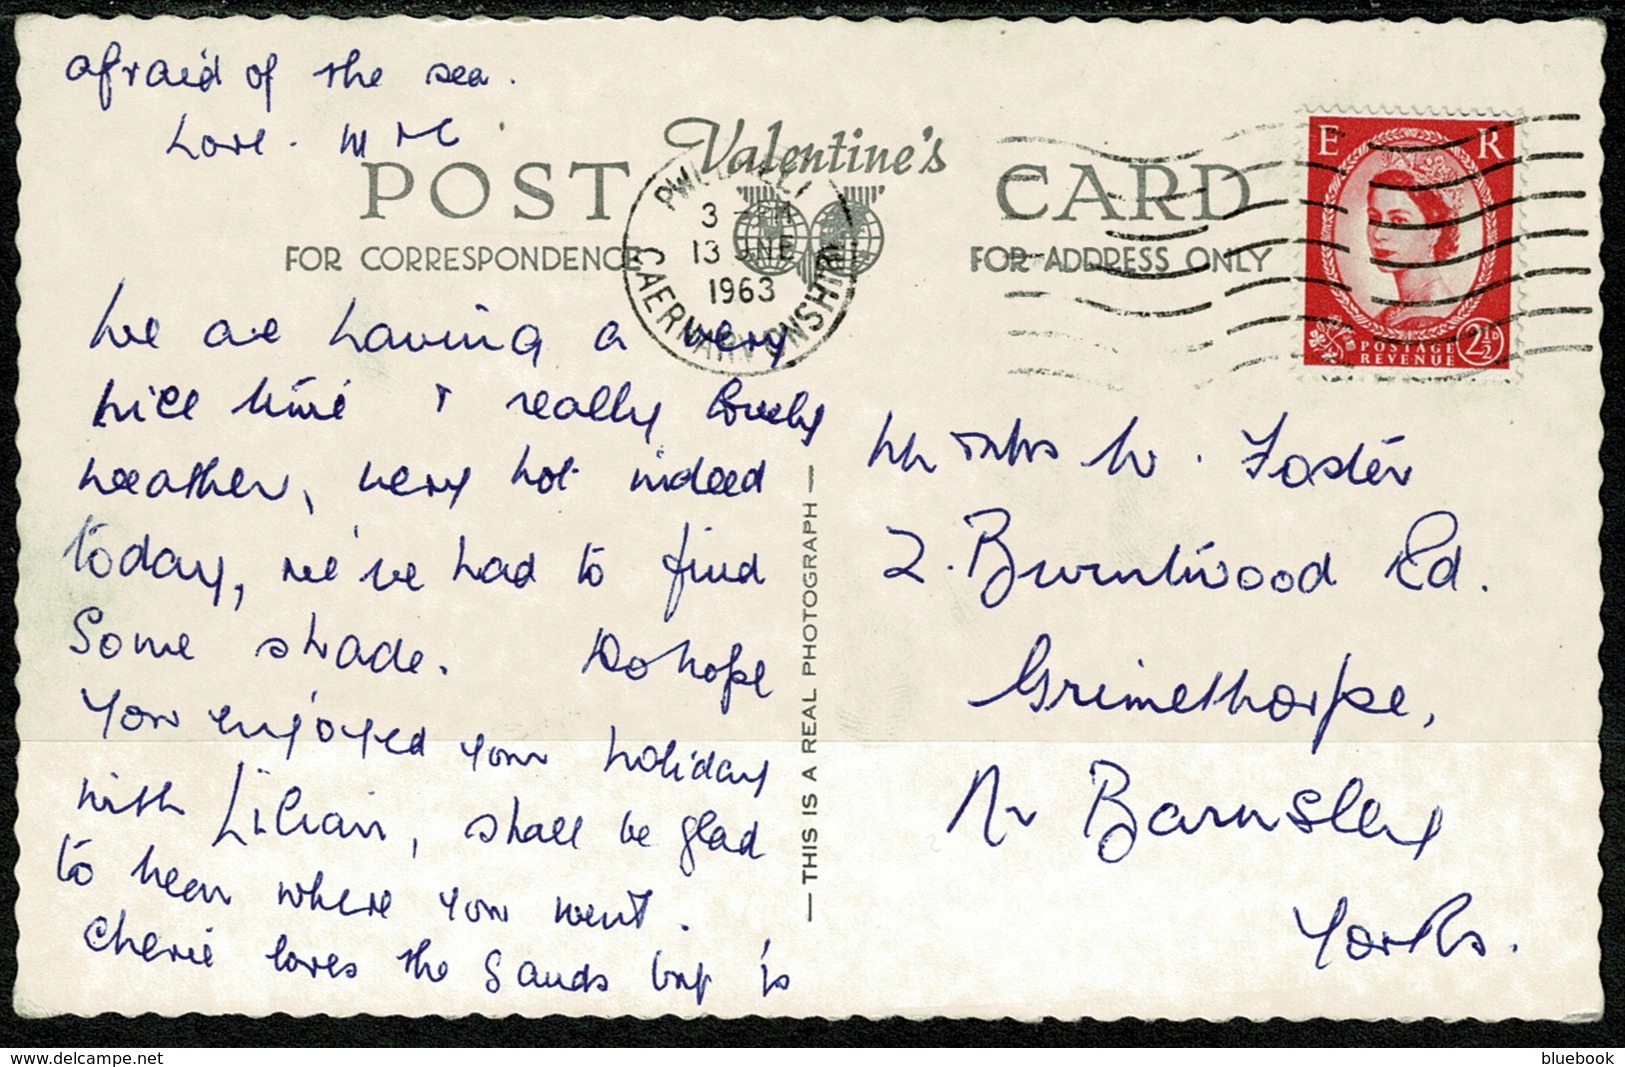 afraid of the sea.
Love.
Valentine's
POST CARD
FOR CORRESPONDENCE
FOR ADDRESS ONLY
PWLLHELI
3 - PM
13 JNE
1963
CAERNARVONSHIRE
E R
POSTAGE
REVENUE
2½D
We are having a very
nice time & really lovely
weather, very hot indeed
today, we've had to find
some shade. Do hope
you enjoyed your holiday
with Lilian, shall be glad
to hear where you went.
Cherie loves the sands but is
— THIS IS A REAL PHOTOGRAPH —
Mr & Mrs W. Foster
2. Burntwood Rd.
Grimethorpe,
Nr Barnsley
Yorks.
delcampe.net
bluebook